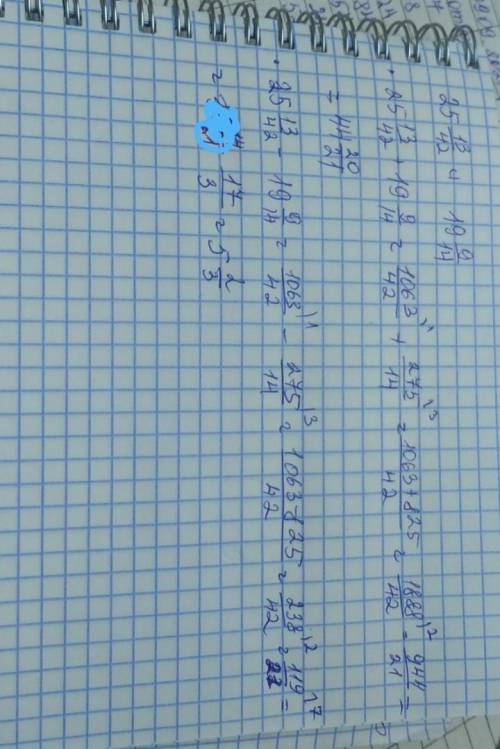 25 13/42 и 19 9/14
· 25 13/42 + 19 9/14 = 1063/42 \1 + 275/14 \3 = 1063+825/42 = 1888/42 \2 = 944/21 =
= 44 20/21
· 25 13/42 - 19 9/14 = 1063/42 \1 - 275/14 \3 = 1063-825/42 = 238/42 \2 = 119/21 \7 =
= 17/3 = 5 2/3